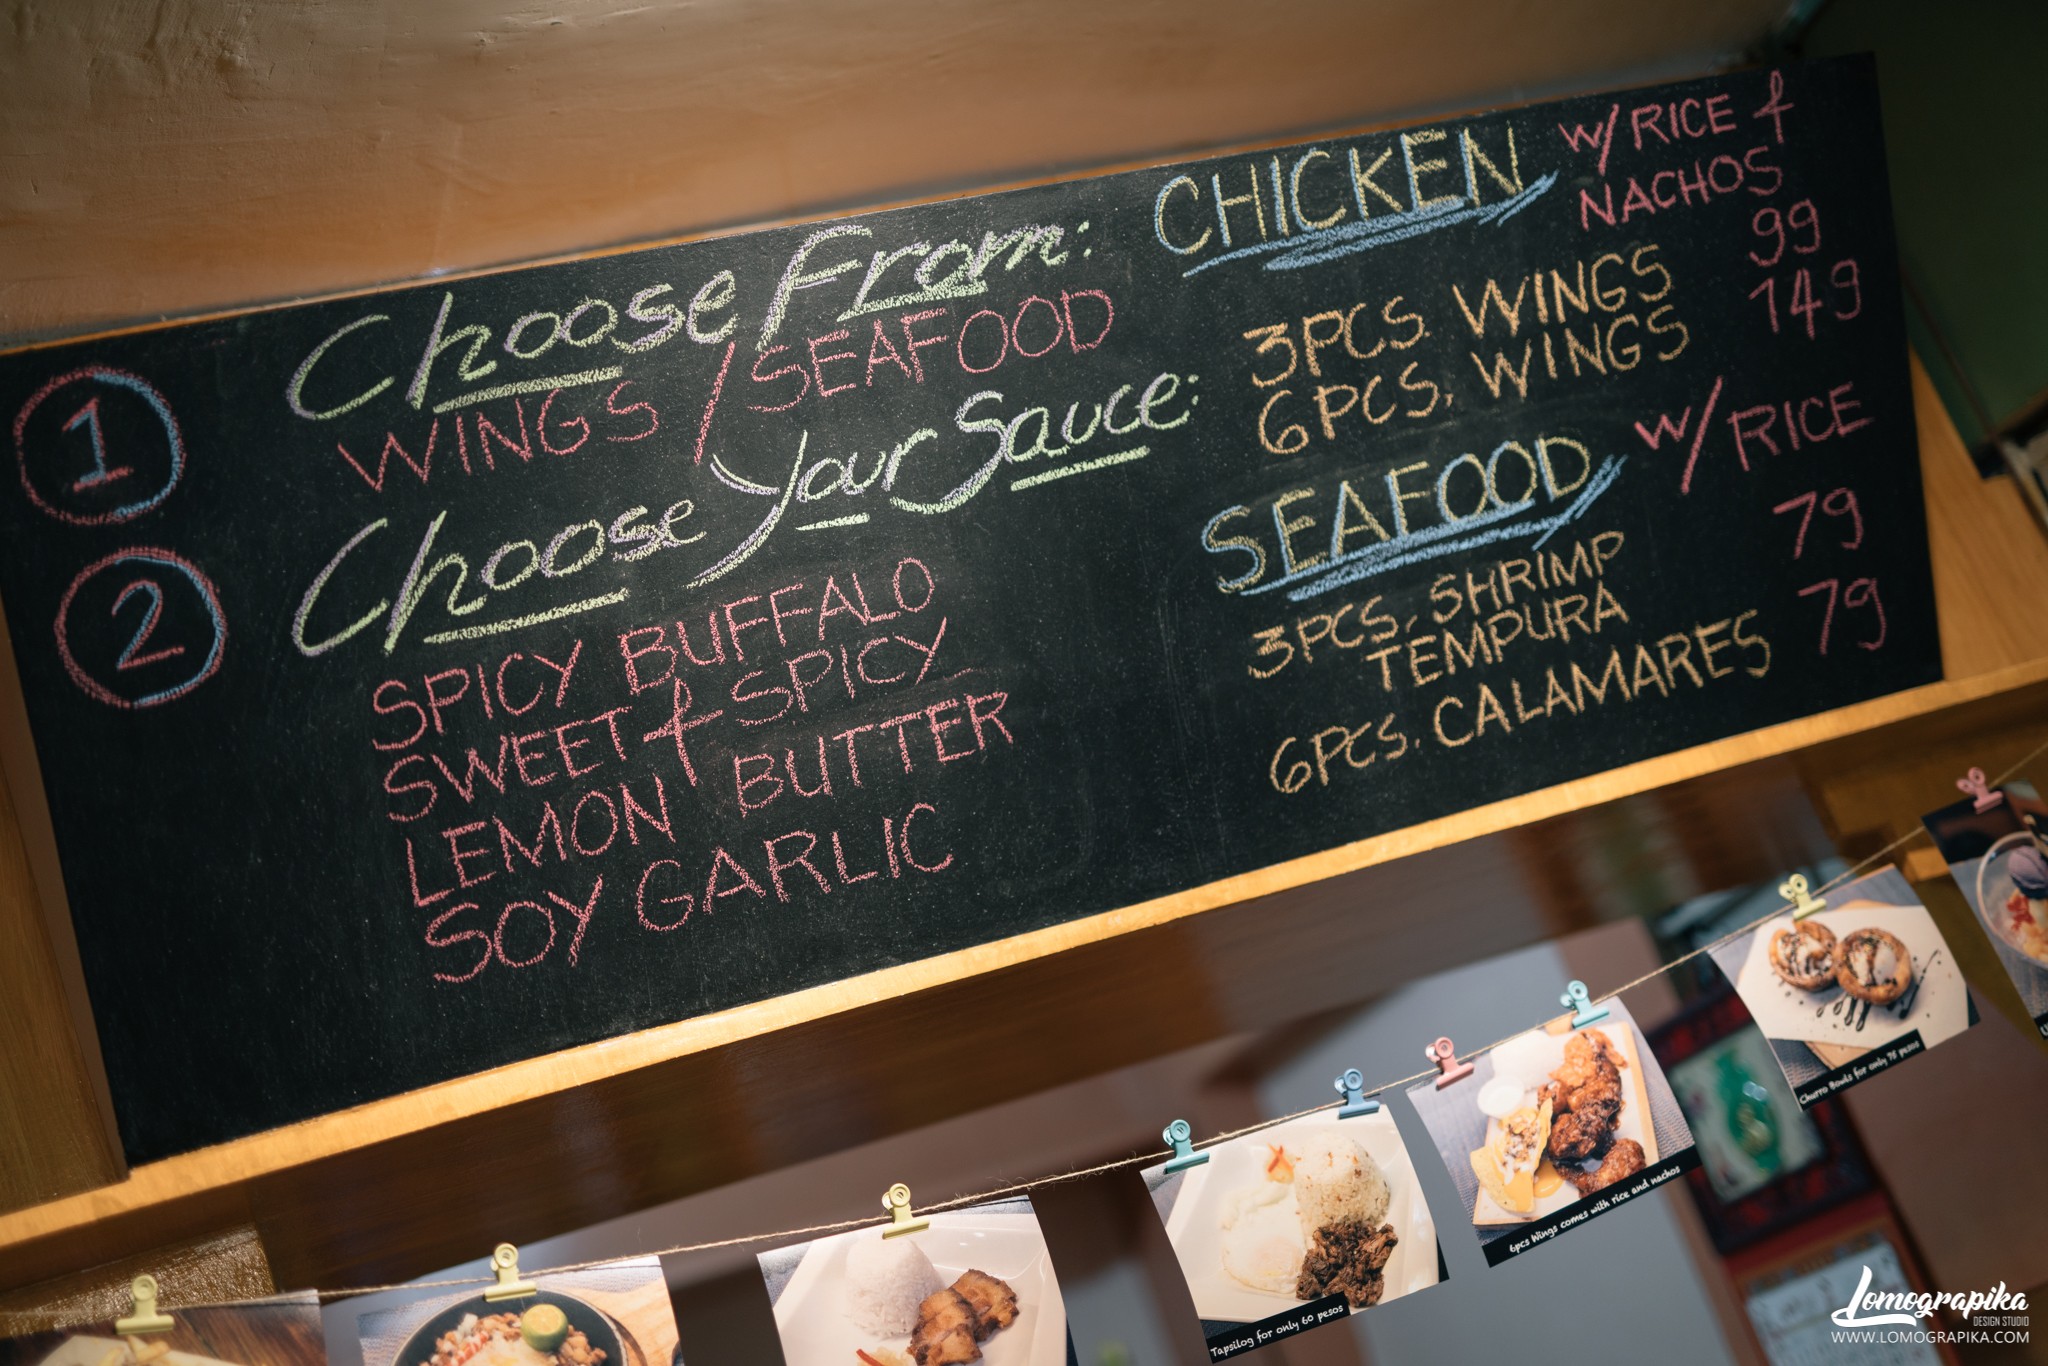 1
Choose From:
WINGS / SEAFOOD
2
Choose Your Sauce:
SPICY BUFFALO
SWEET & SPICY
LEMON BUTTER
SOY GARLIC
CHICKEN W/ RICE &
NACHOS
3PCS. WINGS 99
6PCS. WINGS 149
SEAFOOD W/ RICE
3PCS. SHRIMP
TEMPURA 79
6PCS. CALAMARES 79
Tapsilog for only 60 pesos
6pcs Wings comes with rice and nachos
Churro Bowls for only 78 pesos
Lomograpika
DESIGN STUDIO
WWW.LOMOGRAPIKA.COM